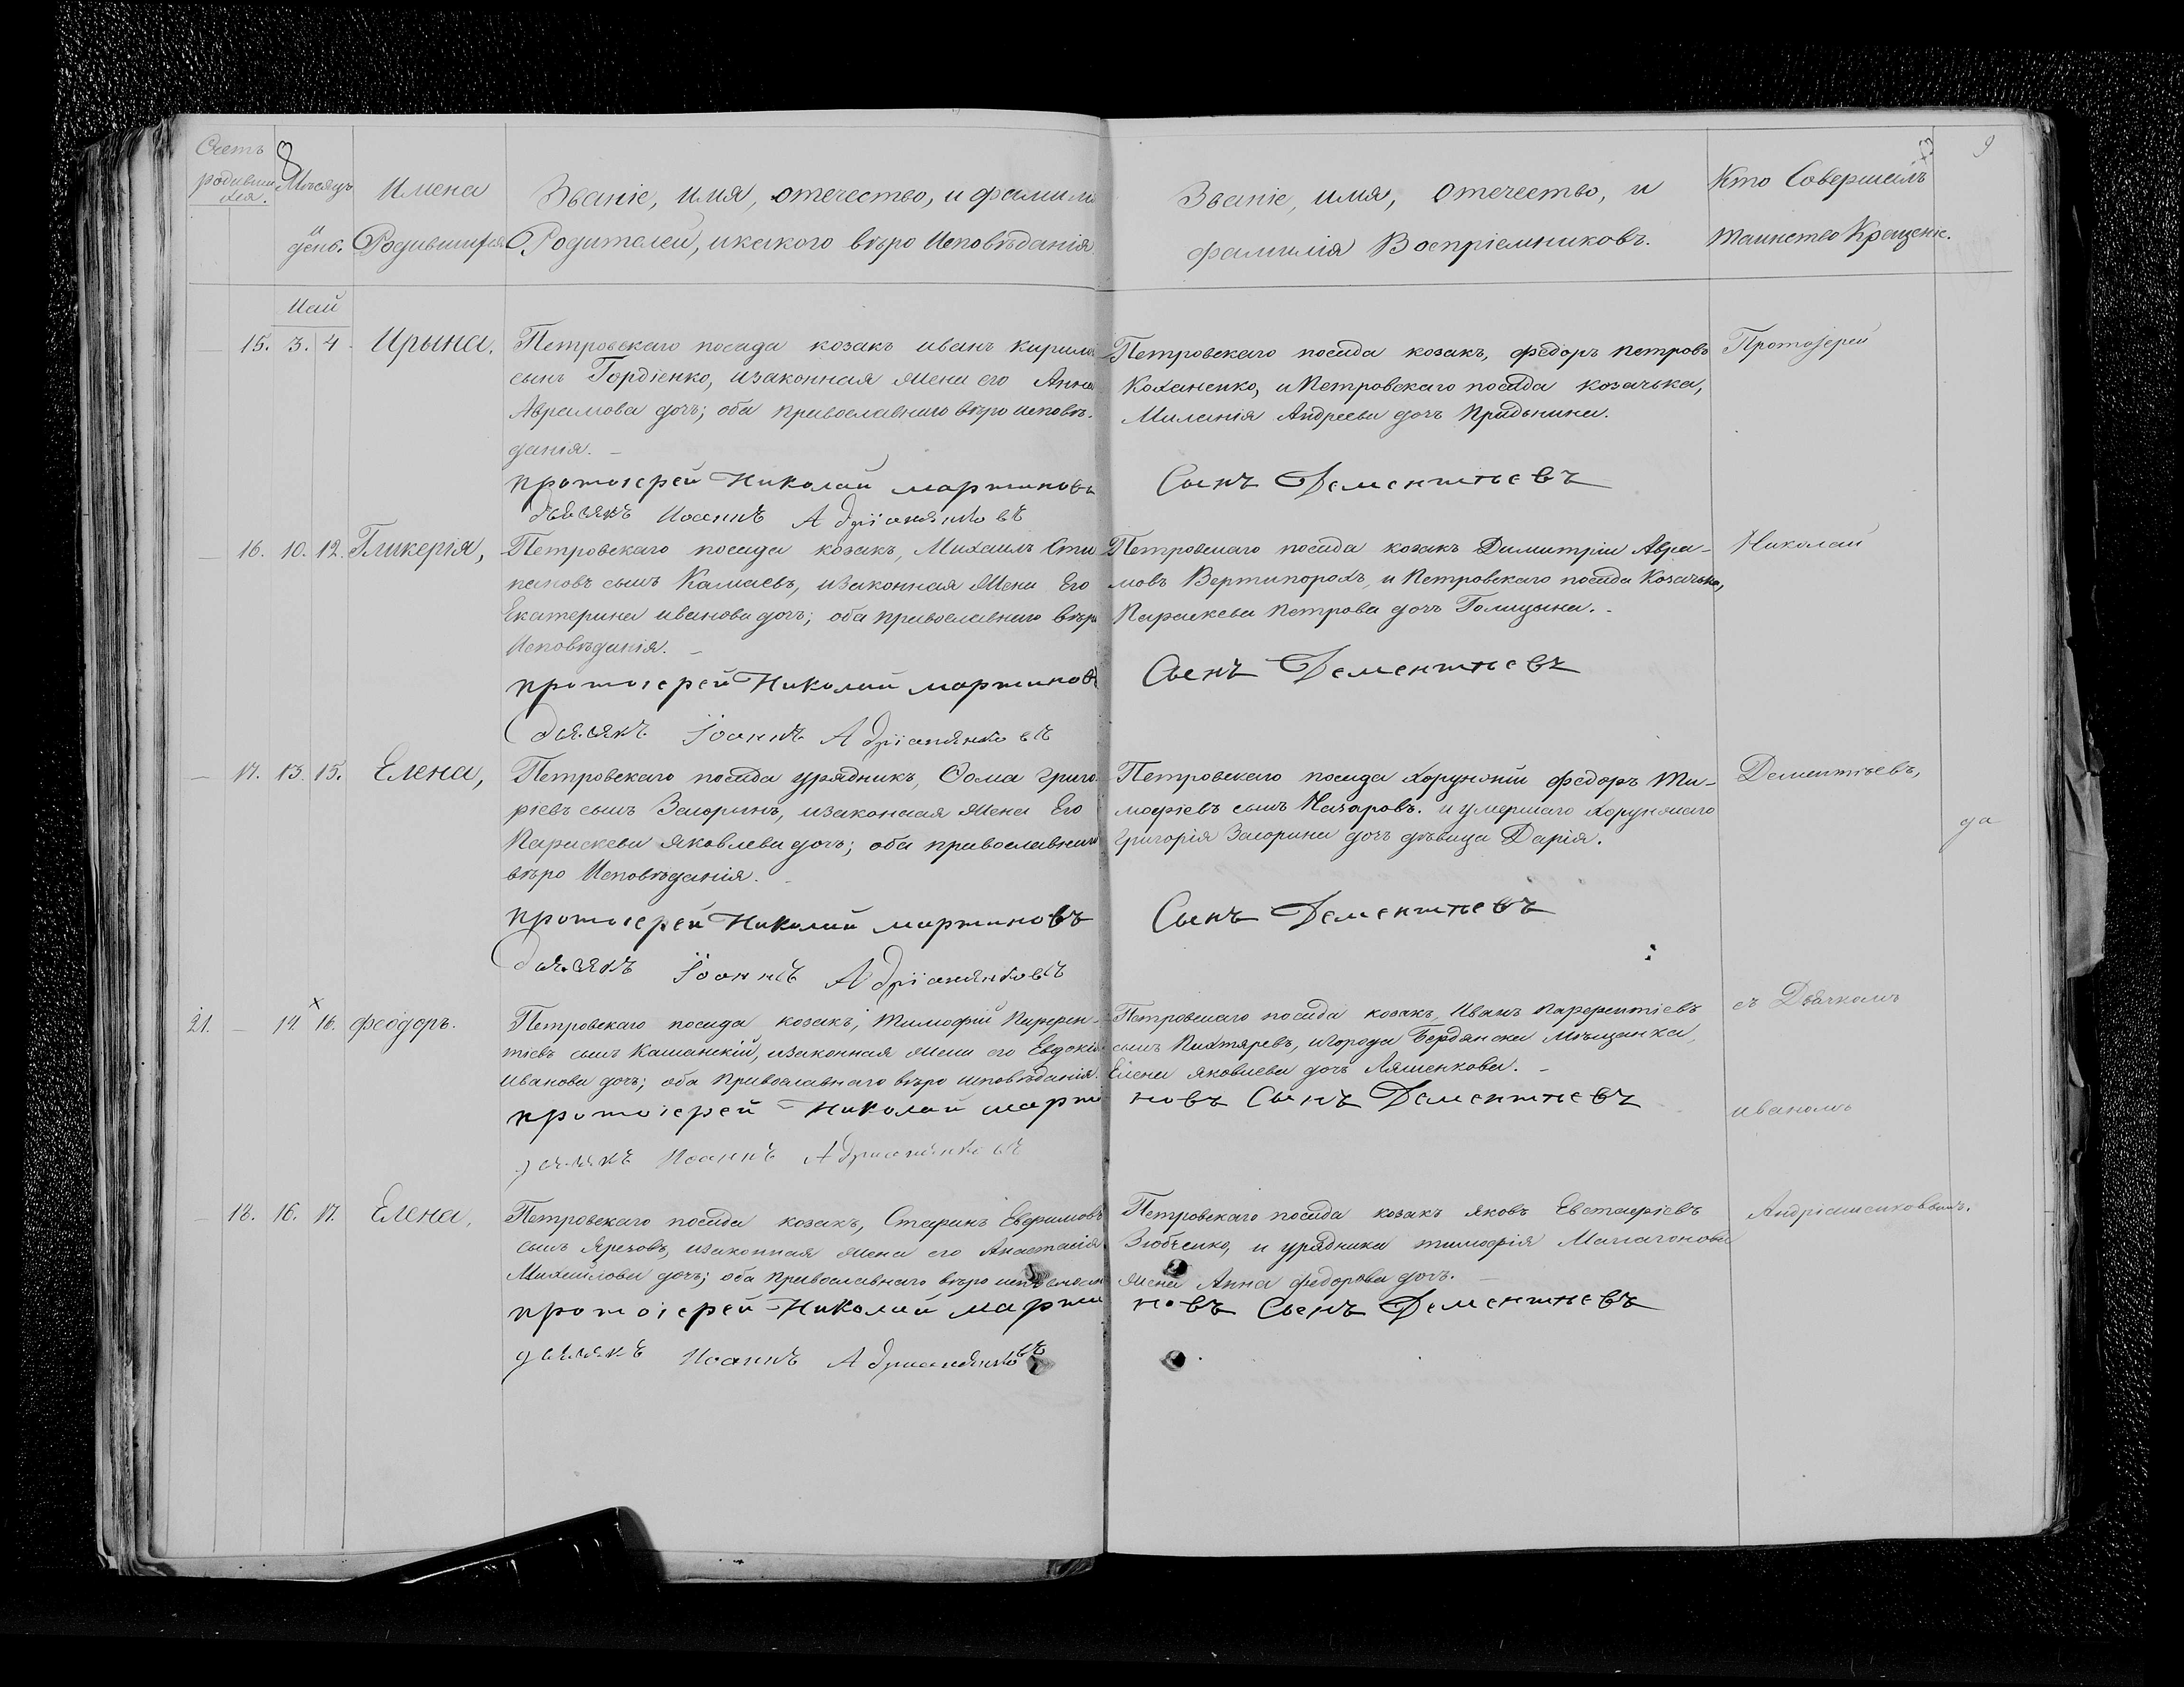 Счетъ
родивши
хся.
Мѣсяцъ
день.
Имена
Родившихся
Званіе, имя, отечество, и фамилія
Родителей, икакого вѣро Исповѣданія.
Званіе, имя, отечество, и
фамилія Воспріемниковъ.
Кто Совершалъ
таинство Крещенія.
9
Май
15. 3. 4. Ирына,
Петровскаго посада козакъ иванъ кирило
сынъ Гордіенко, изаконная жена его Анна
Аврамова дочь; оба православнаго вѣро исповѣ-
данія.
протоіерей Николай мартиновъ
дьячкъ Иоаннъ Адріаненковъ
Петровскаго посада козакъ, федоръ петровъ
Коханенко, и Петровскаго посада козачька,
Миланія Андреева дочь Придьнина.
Сынъ Дементьевъ
Протоіерей
16. 10. 12. Гликерія,
Петровскаго посада козакъ, Михаилъ Сти
пановъ сынъ Камаевъ, изаконная жена Его
Екатерина иванова дочь; оба православнаго вѣро
Исповѣданія.
протоіерей Николай мартиновъ
дьячкъ Іоаннъ Адріаненковъ
Петровскаго посада козакъ Димитрій Авра-
мовъ Вертипорохъ, и Петровскаго посада Козачька,
Параскева Петрова дочь Голицына.
Сынъ Дементьевъ
Николай
17. 13. 15. Елена,
Петровскаго посада урядникъ, Ѳома григо
ріевъ сынъ Загоринъ, изаконная жена Его
Параскева яковлева дочь; оба православнаго
вѣро Исповѣданія.
протоіерей Николай мартиновъ
дьячкъ Іоаннъ Адріаненковъ
Петровскаго посада хорунжій федоръ Ти-
мофіевъ сынъ Назаровъ. и умершаго хорунжаго
григорія Загорина дочь дѣвица Дарія.
Сынъ Дементьевъ
Дементьевъ,
да
21. 14. 16. феодоръ.
Петровскаго посада козакъ, тимофій Парфен-
тіевъ сынъ Кашанскій, изаконная жена его Евдокія
иванова дочь; оба православнаго вѣро исповѣданія.
протоіерей Николай марти
дьячкъ Иоаннъ Адріаненковъ
Петровскаго посада козакъ, Иванъ парфентіевъ
сынъ Пихтяревъ, игорода Бердянска мѣщанка,
Елена яковлева дочь Ляшенкова.
новъ Сынъ Дементьевъ
съ Дьячкомъ
иваномъ
18. 16. 17. Елена,
Петровскаго посада козакъ, Стафанъ Евфимовъ
сынъ Яреховъ, изаконная жена его Анастасія
Михайлова дочь; оба православнаго вѣро
протоіерей Николай марти
дьячкъ Иоаннъ Адріаненковъ
Петровскаго посада козакъ яковъ Евстафіевъ
Зюбченко, и урядника тимофія
жена Анна федорова дочь.
новъ Сынъ Дементьевъ
Андріашенковымъ.